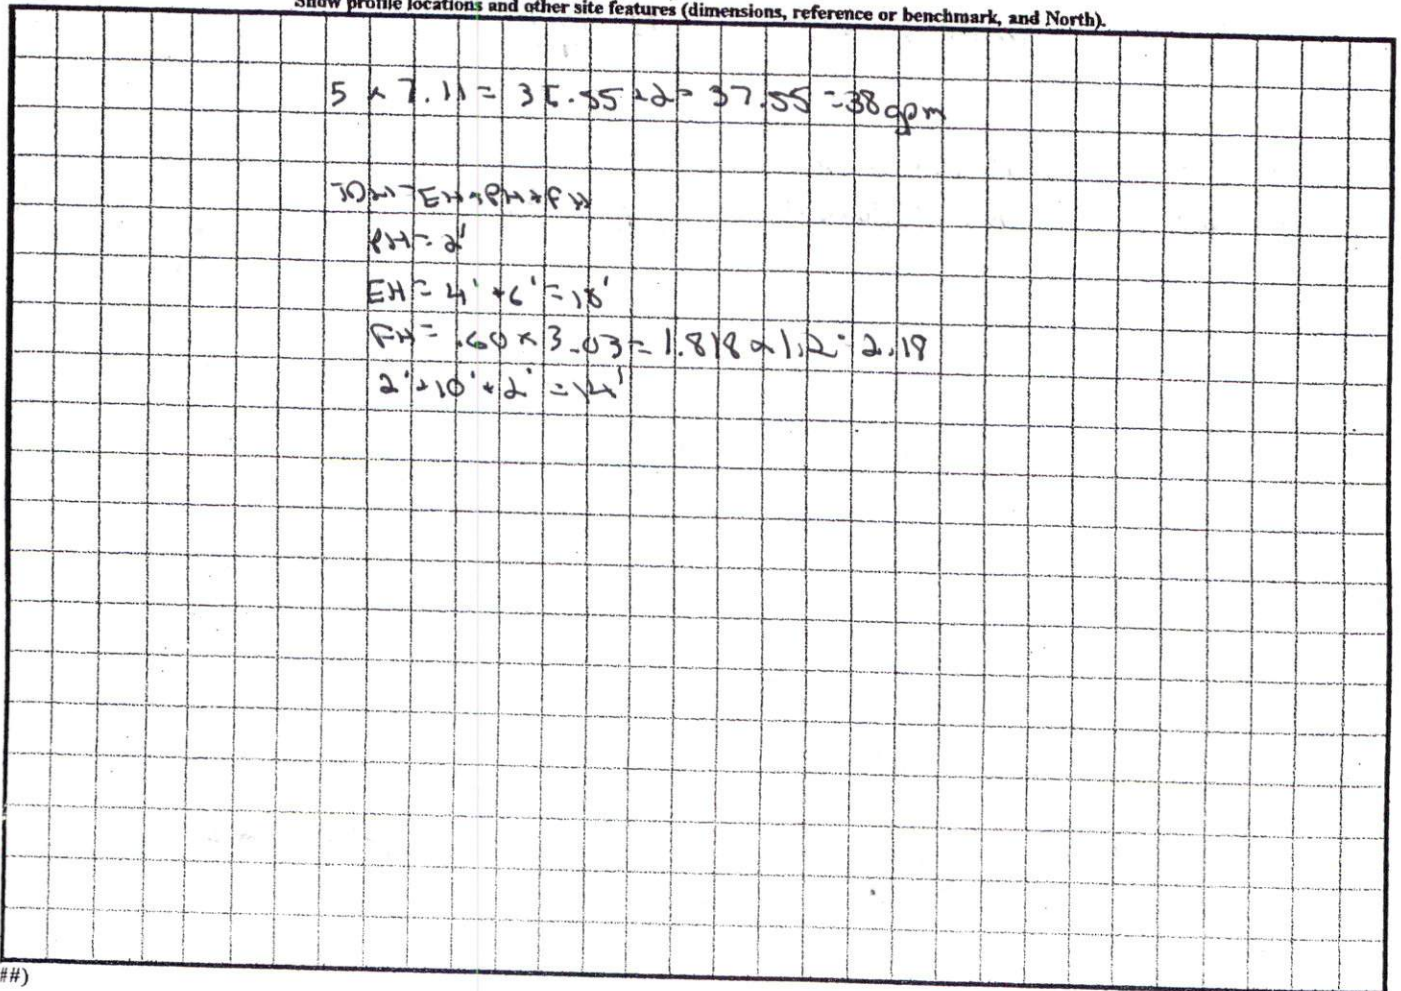 Show profile locations and other site features (dimensions, reference or benchmark, and North).
5 x 7.11 = 35.55 +2 = 37.55 = 38 gpm
TDH = EH + PH + FH
PH = 2'
EH = 4' + 6' = 10'
FH = .60 x 3.03 = 1.818 x 1.2 = 2.18
2' + 10' + 2' = 14'
##)